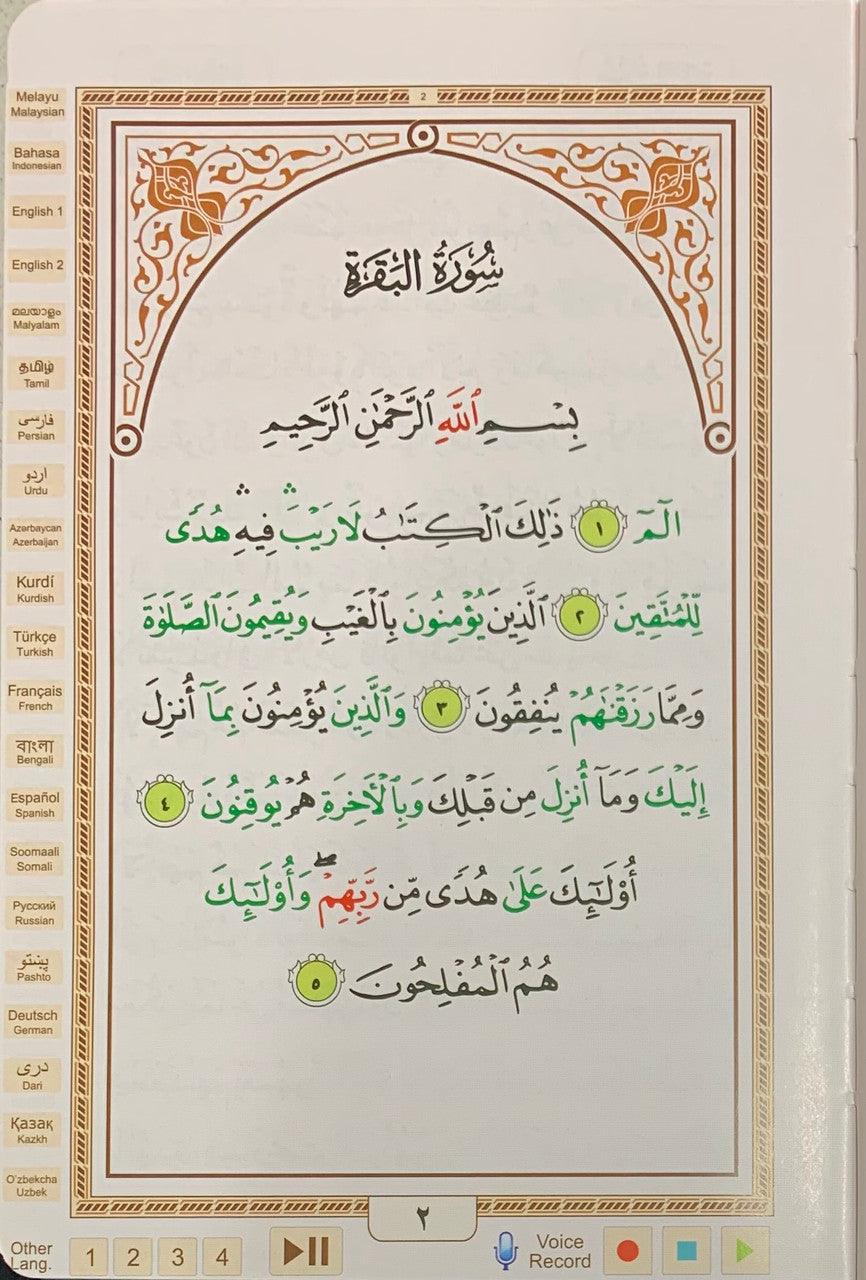 2
سُورَةُ البَقَرَةِ
بِسْمِ ٱللَّهِ ٱلرَّحْمَٰنِ ٱلرَّحِيمِ
الٓمٓ ١ ذَٰلِكَ ٱلْكِتَٰبُ لَا رَيْبَ ۛ فِيهِ ۛ هُدًى
لِّلْمُتَّقِينَ ٢ ٱلَّذِينَ يُؤْمِنُونَ بِٱلْغَيْبِ وَيُقِيمُونَ ٱلصَّلَوٰةَ
وَمِمَّا رَزَقْنَٰهُمْ يُنفِقُونَ ٣ وَٱلَّذِينَ يُؤْمِنُونَ بِمَآ أُنزِلَ
إِلَيْكَ وَمَآ أُنزِلَ مِن قَبْلِكَ وَبِٱلْءَاخِرَةِ هُمْ يُوقِنُونَ ٤
أُو۟لَٰٓئِكَ عَلَىٰ هُدًى مِّن رَّبِّهِمْ ۖ وَأُو۟لَٰٓئِكَ
هُمُ ٱلْمُفْلِحُونَ ٥
٢
Melayu
Malaysian
Bahasa
Indonesian
English 1
English 2
മലയാളം
Malyalam
தமிழ்
Tamil
فارسی
Persian
اردو
Urdu
Azərbaycan
Azerbaijan
Kurdí
Kurdish
Türkçe
Turkish
Français
French
বাংলা
Bengali
Español
Spanish
Soomaali
Somali
Русский
Russian
پښتو
Pashto
Deutsch
German
دری
Dari
Қазақ
Kazkh
O'zbekcha
Uzbek
Other
Lang.
1 2 3 4
Voice
Record